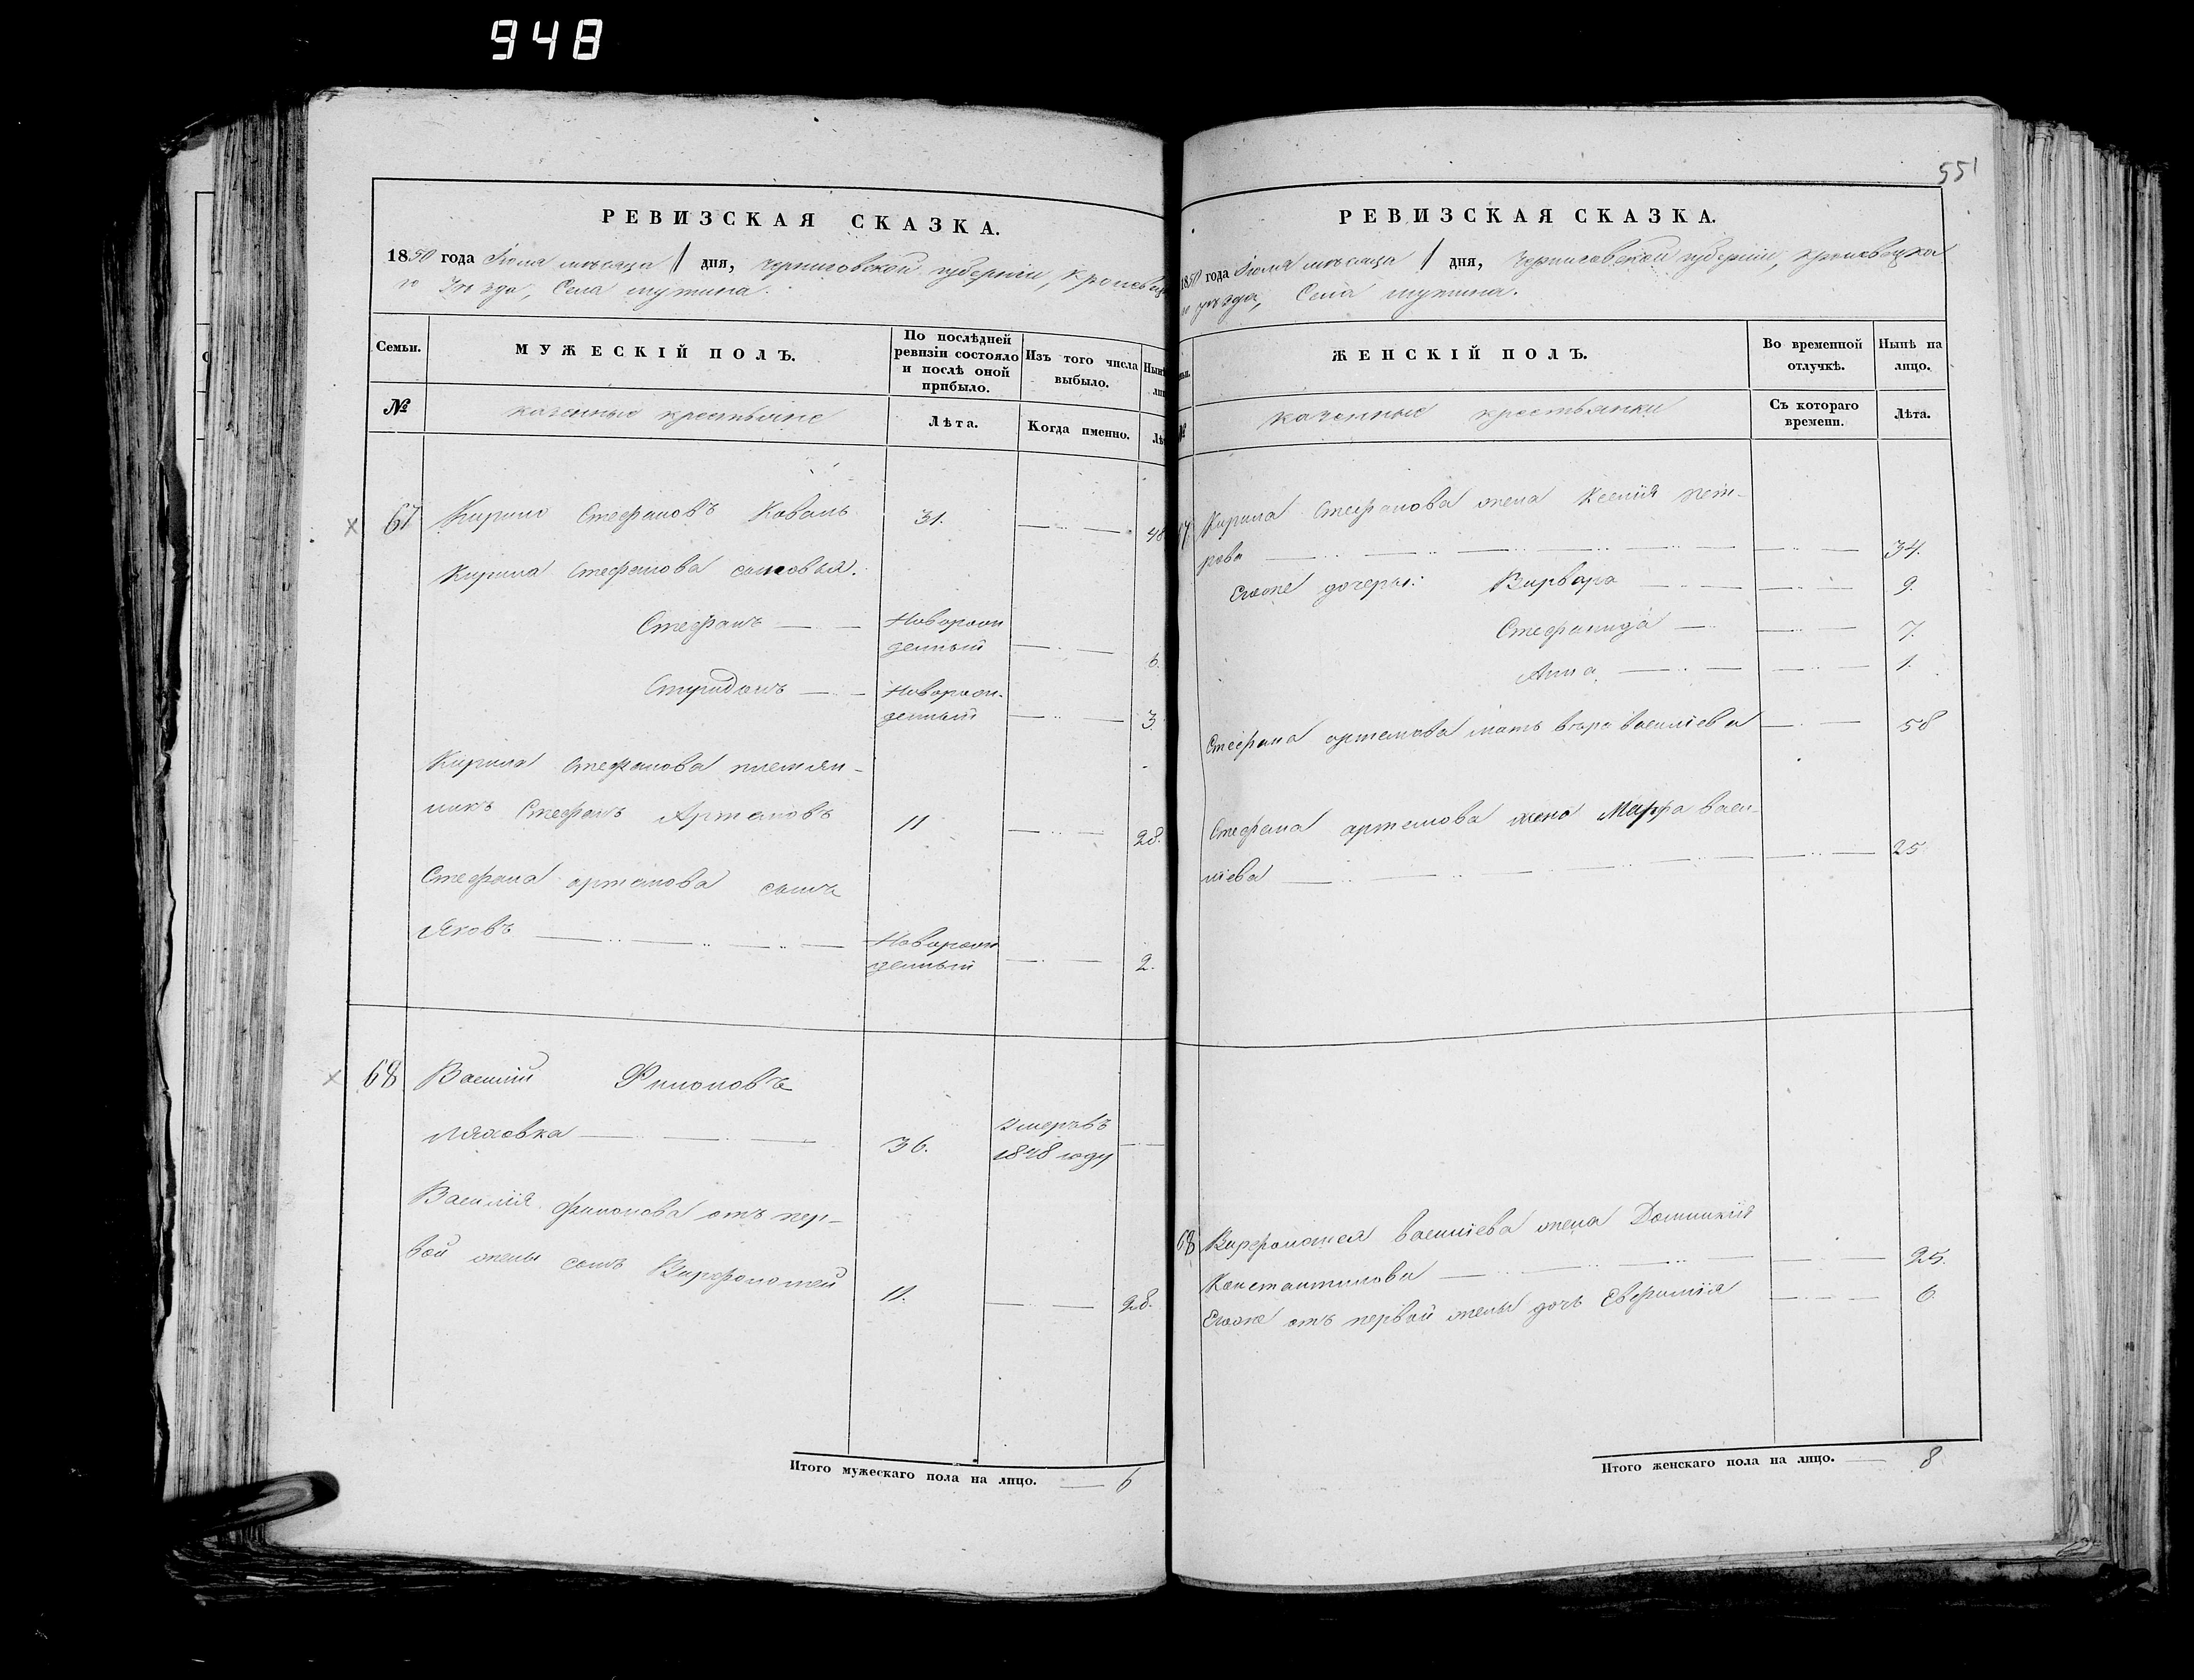 948
РЕВИЗСКАЯ СКАЗКА.
1850 года Іюля мѣсяца 1 дня, Черниговской губерніи, Кролевец
го Уѣзда, Села мутина.
Семьи.
МУЖЕСКІЙ ПОЛЪ.
По послѣдней ревизіи состояло и послѣ оной прибыло.
Изъ того числа выбыло.
№
казенные крестьяне
Лѣта.
Когда именно.
67 Кирило Стефановъ Коваль 31. 48
Кирила Стефанова сыновья:
Стефанъ Новорож
денный 6.
Спиридонъ Новорож-
денный 3.
Кирила Стефанова племян-
никъ Стефанъ Артемовъ 11 28.
Стефана артемова сынъ
Яковъ Новорож
денный 2.
68 Василий Филоновъ
Ляховка 36. Умеръ въ
1848 году
Василія филонова отъ пер-
вой жены сынъ Варфоломей 11. 28.
Итого мужескаго пола на лицо. 6
551
РЕВИЗСКАЯ СКАЗКА.
1850 года Іюля мѣсяца 1 дня, Черниговской губерніи, Кролевецка
го уѣзда, Села мутина.
ЖЕНСКІЙ ПОЛЪ.
Во временной отлучкѣ.
Нынѣ на лицо.
казенные крестьянки
Съ котораго времени.
Лѣта.
Кирила Стефанова жена Ксенія пет-
рова 34.
Егоже дочеры: Варвара 9.
Стефанида 7.
Анна 1.
Стефана артемова мать вѣра василіева 58
Стефана артемова жена Марфа васи-
ліева 25
68 Варфоломея василіева жена Домникія
Константинова 25.
Егоже отъ первой жены дочь Евфимія 6.
Итого женскаго пола на лицо. 8